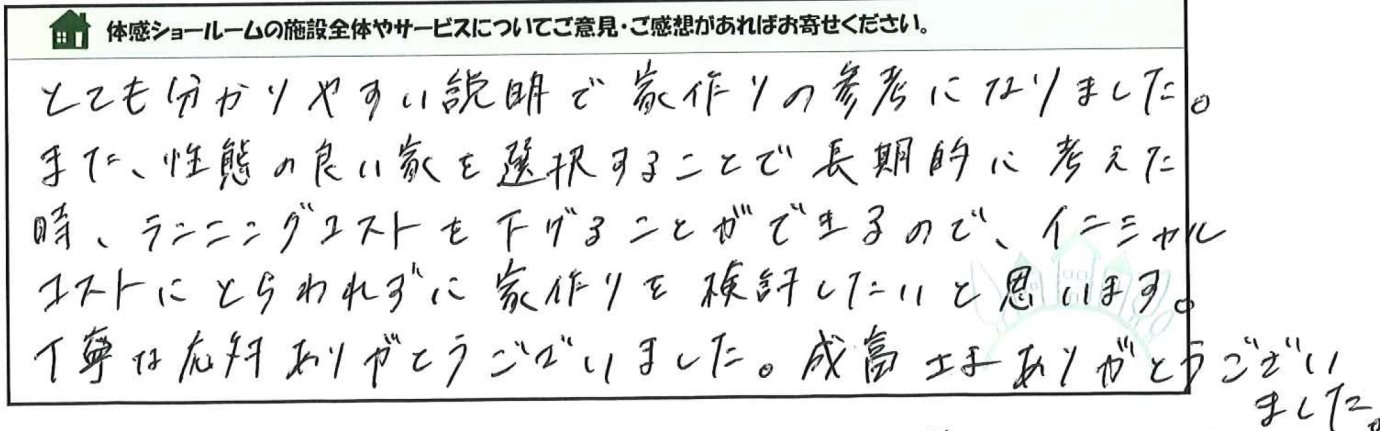 体感ショールームの施設全体やサービスについてご意見・ご感想があればお寄せください。
とても分かりやすい説明で家作りの参考になりました。
また、性態の良い家を選択することで長期的に考えた
時、ランニングコストを下げることができるので、イニシャル
コストにとらわれずに家作りを検討したいと思います。
丁寧な応対ありがとうございました。成富さまありがとうござい
ました。